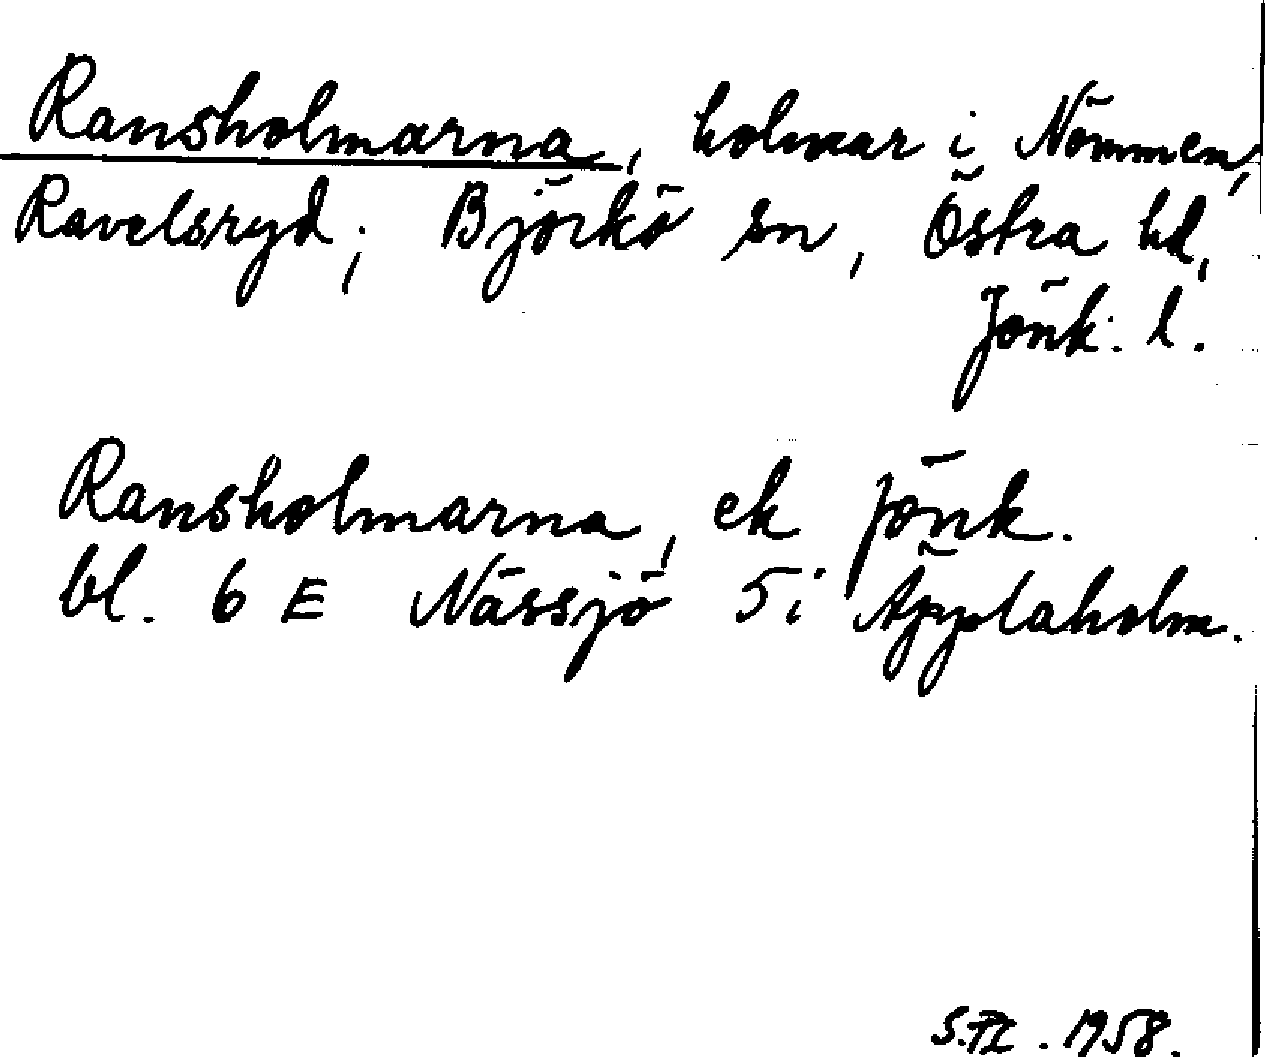 Ransholmarna, holmar i Nömmen,
Ravelsryd; Björkö sn, Östra hd,
Jönk. l.
Ransholmarna, ek Jönk.
bl. 6 E Nässjö 5i Äpplaholm.
1958.